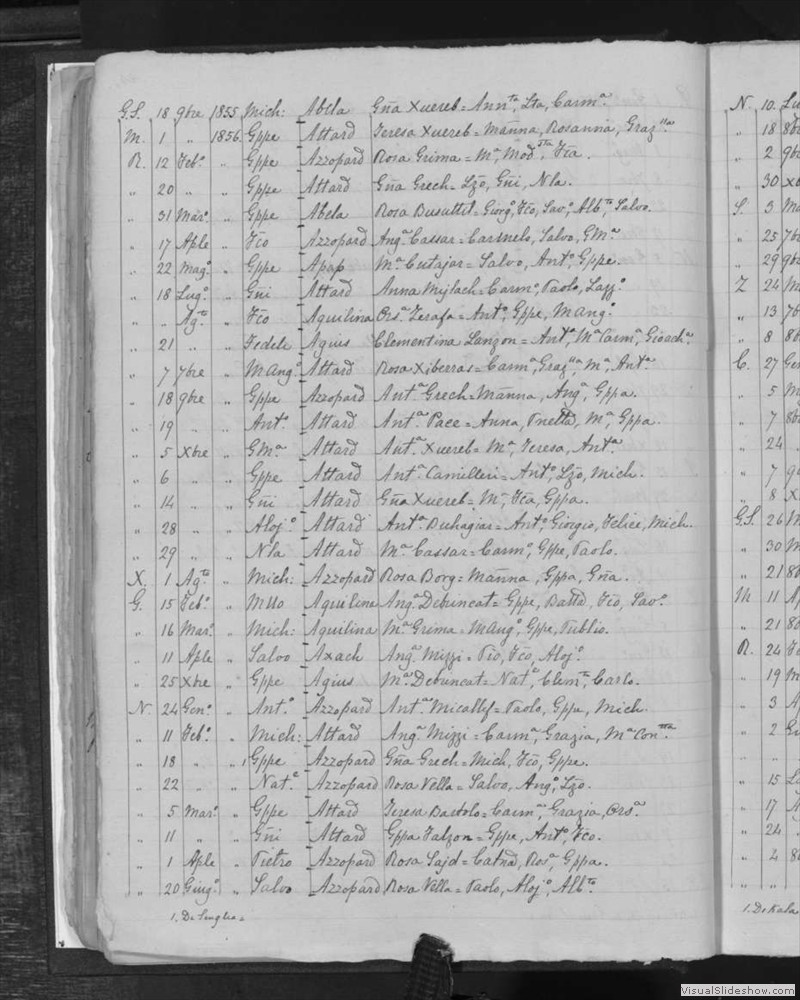 G.S. 18 9bre 1855 Mich: Abela Gña Xuereb = Annta, Lta, Carma.
M. 1 " 1856 Gppe Attard Teresa Xuereb = Mañna, Rosanna, Grazlla.
R. 12 Febo. " Gppe Azzopard Rosa Grima = Ma, Modsta, Fca.
" 20 " " Gppe Attard Gña Grech = Lzo, Gñi, Nla.
" 31 Maro. " Gppe Abela Rosa Busuttil = Giorgo, Fco, Savo, Albto, Salvo.
" 17 Aple " Fco Azzopard Anga Cassar = Carmelo, Salvo, GMa.
" 22 Mago. " Gppe Apap Ma Cutajar = Salvo, Anto, Gppe.
" 18 Lugo. " Gñi Attard Anna Mijlach = Carmo, Paolo, Lazzo.
" " Agto " Fco Aquilina Orsa Zerafa = Anto, Gppe, MAngo.
" 21 " " Fedele Agius Clementina Lanzon = Anta, Ma Carma, Gioacha.
" 7 7bre " MAngo Attard Rosa Xiberras = Carma, Grazlla, Ma, Anta.
" 18 9bre " Gppe Azzopard Anta Grech = Mañna, Anga, Gppa.
" 19 " " Anto Attard Anta Pace = Anna, Pnetta, Ma, Gppa.
" 5 Xbre " GMa Attard Anta Xuereb = Ma, Teresa, Anta.
" 6 " " Gppe Attard Anta Camilleri = Anto, Lzo, Mich.
" 14 " " Gñi Attard Gña Xuereb = Ma, Fca, Gppa.
" 28 " " Alojo Attard Anta Buhagiar = Anto, Giorgio, Felice, Mich.
" 29 " " Nla Attard Ma Cassar = Carmo, Gppe, Paolo.
X. 1 Agto " Mich: Azzopard Rosa Borg = Mañna, Gppa, Gña.
G. 15 Febo. " Aquilina Anga Debuncat = Gppe, Batta, Fco, Savo.
" 16 Maro. " Mich: Aquilina Ma Grima = MAngo, Gppe, Publio.
" 11 Aple " Salvo Axach Anga Mizzi = Pio, Fco, Alojo.
" 25 Xbre " Gppe Agius Ma Debuncat = Nata, Clemte, Carlo.
N. 24 Geno. " Anto Azzopard Anta Micallef = Paolo, Gppe, Mich.
" 11 Febo. " Mich: Attard Anga Mizzi = Carma, Grazia, Ma
" 18 " " 1 Gppe Azzopard Gña Grech = Mich, Fco, Gppe.
" 22 " " Nate Azzopard Rosa Vella = Salvo, Ango, Lzo.
" 5 Maro. " Gppe Attard Teresa Bartolo = Carma, Grazia, Orsa
" 11 " " Gñi Attard Gppa Falzon = Gppe, Anto, Fco.
" 1 Aple " Pietro Azzopard Rosa Sajd = Catna, Rosa, Gppa.
" 20 Giugo. " Salvo Azzopard Rosa Vella = Paolo, Alojo, Albto.
1. De Senglea =
N. 10. Lu
" 18 8b
" 2 9b
" 30 Xb
S. 3 Ma
" 25 7b
" 29 9b
Z 24 M
" 13 7b
" 8 8b
C. 27 Gen
" 5 M
" 7 8b
" 24
" 7 9
" 8 X
G.S. 26 M
" 30 M
" 21 8b
M 11 A
" 21 8b
R. 24 Fe
" 19 M
" 3 A
" 2
" 15 L
" 17 A
" 24
" 4 8
1. De Kala
VisualSlideshow.com